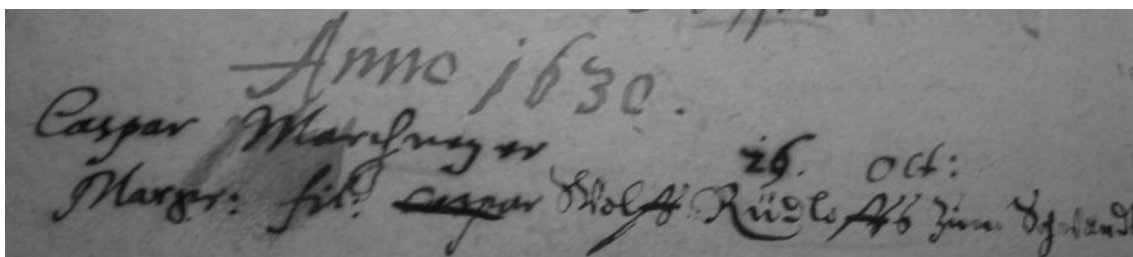 Anno 1630.
Caspar Marchmeyer 26. Oct:
Marger: fil: Caspar Wolff Rüdloffs zum Schwandt